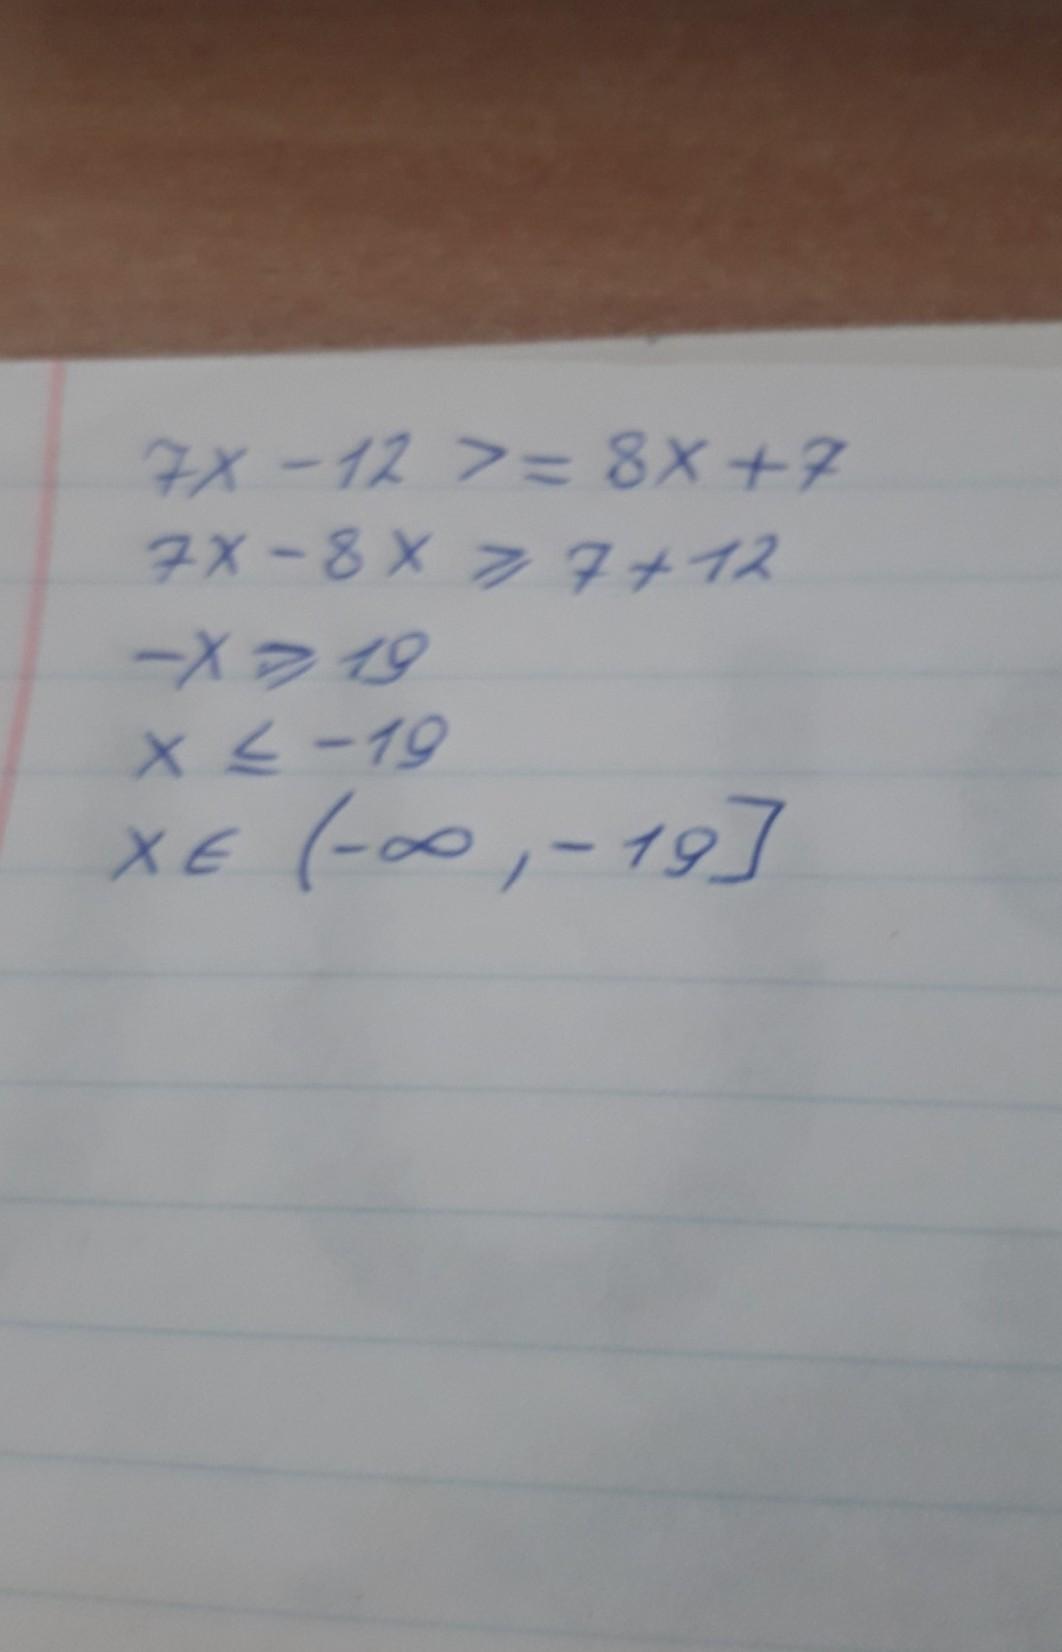 7x - 12 >= 8x + 7
7x - 8x ⩾ 7 + 12
-x ⩾ 19
x ≤ -19
x ∈ (-∞, -19]